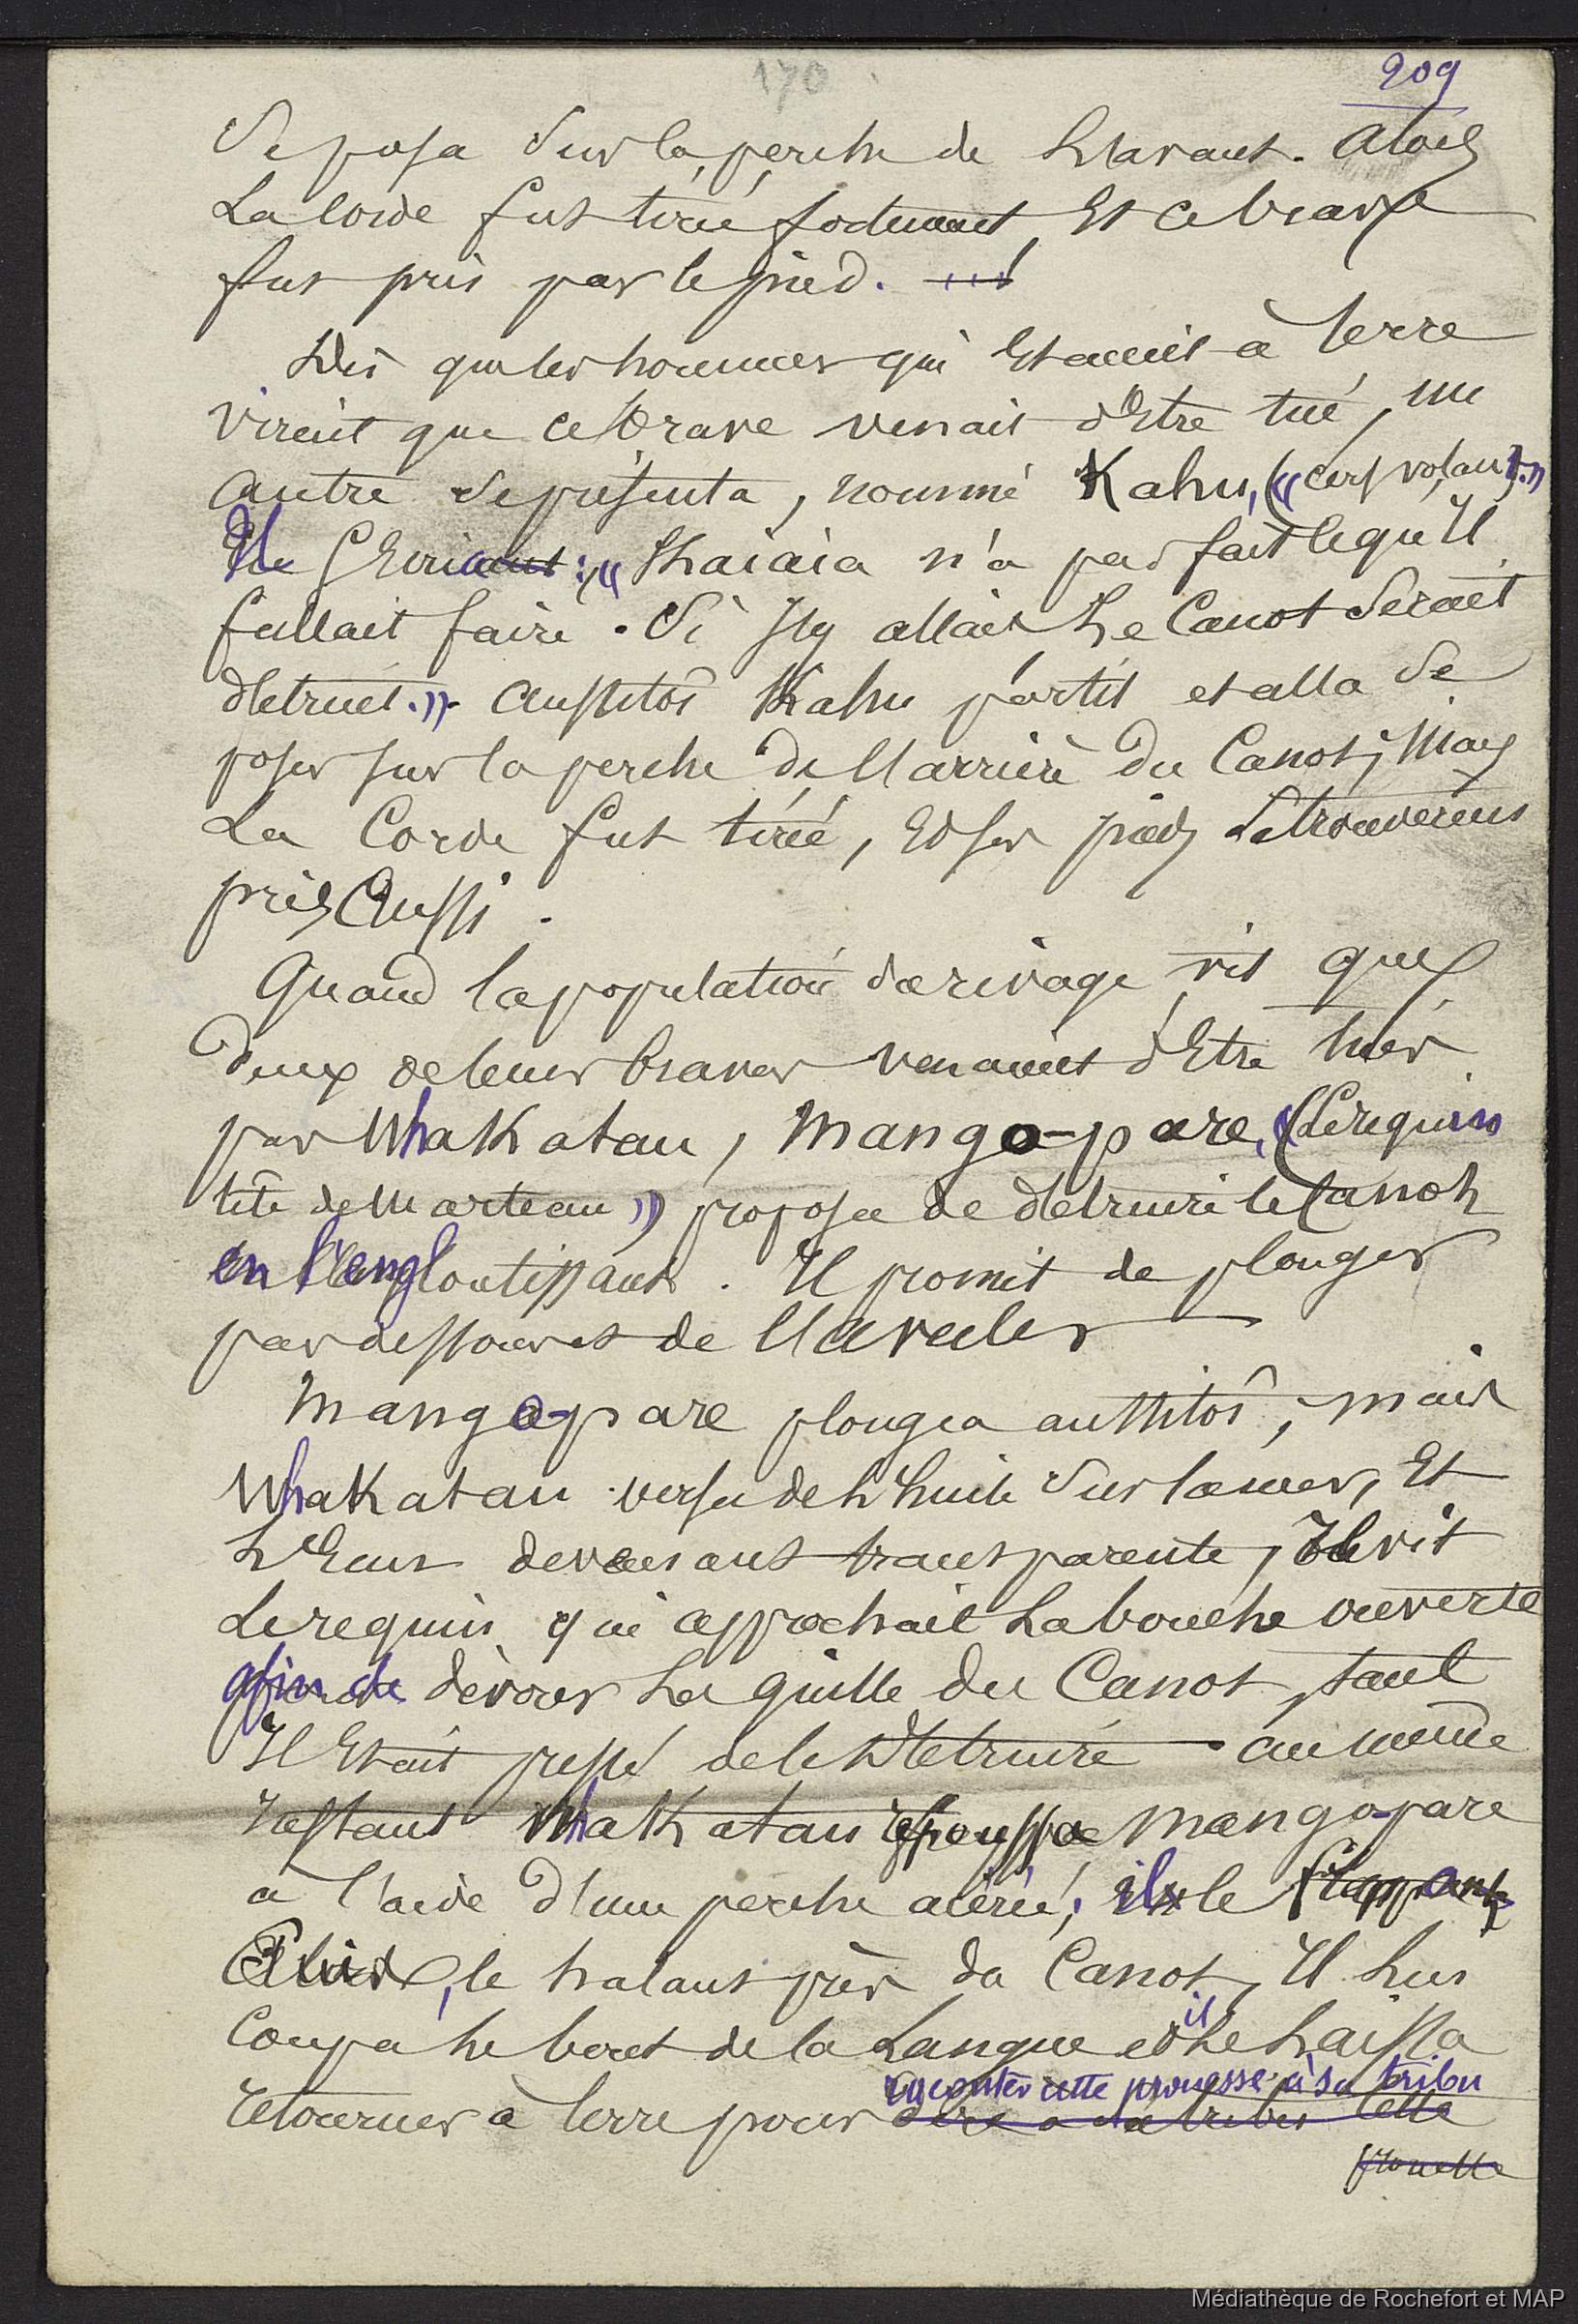 170
209
Se posa Sur la perche de L'avant. alors
La Corde fut tirée fortement, Et ce brave
fut pris par le pied.
Dès que les hommes qui Etaient à terre
virent que ce brave venait d'Etre tué, un
autre se présenta, nommé Kahu, (« cerf volant. »)
Il s'écria : « Kaiaia n'a pas fait ce qu'Il
fallait faire. Si J'y allais Le Canot Serait
détruit. » aussitôt Kahu partit et alla Se
poser sur la perche de l'arrière du Canot; Mais
La Corde fut tirée, Et ses pieds Se trouvèrent
pris Aussi.
Quand la population du rivage vit que
deux de leurs braves venaient d'Etre tués
par Whakatau, Mango-pare, (« Le requin
tête de Marteau ») proposa de détruire le Canot
en l'engloutissant. Il promit de plonger
par dessous et de l'avaler
Mango-pare plongea aussitôt, mais
Whakatau versa de L'huile Sur la mer, Et
L'Eau devenant transparente, Il vit
Le requin qui approchait La bouche ouverte
afin de dévorer La quille du Canot, tant
Il Etait pressé de le Détruire. au même
Instant Whakatau repoussa Mango-pare
à l'aide d'une perche acérée; il le
puis, le halant près du Canot, Il Lui
Coupa Le bout de la Langue et il Le Laissa
raconter cette prouesse à sa tribu
retourner à terre pour dire à sa tribu Cette
prouesse
Médiathèque de Rochefort et MAP